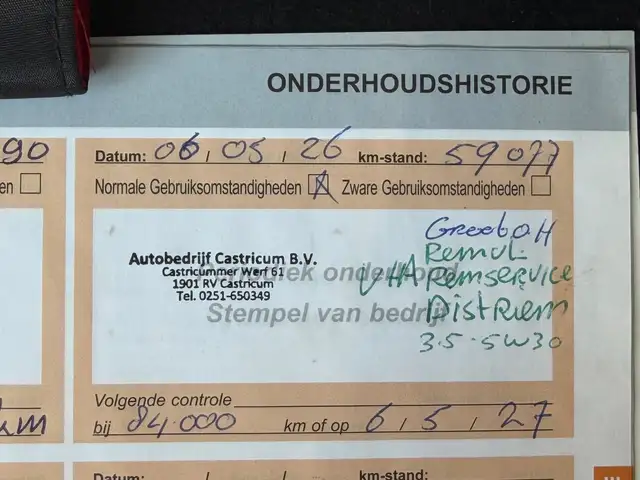 ONDERHOUDSHISTORIE
90
Datum: 06 / 05 / 26 km-stand: 59077
en
Normale Gebruiksomstandigheden Zware Gebruiksomstandigheden
Autobedrijf Castricum B.V.
Castricummer Werf 61
1901 RV Castricum
Tel. 0251-650349
Periodiek onderhoud
Stempel van bedrijf
Grote BH
Remvl.
VHA Remservice
Distriem
3.5 - 5W30
Volgende controle
km
bij 84.000 km of op 6 / 5 / 27
Datum: / / km-stand: